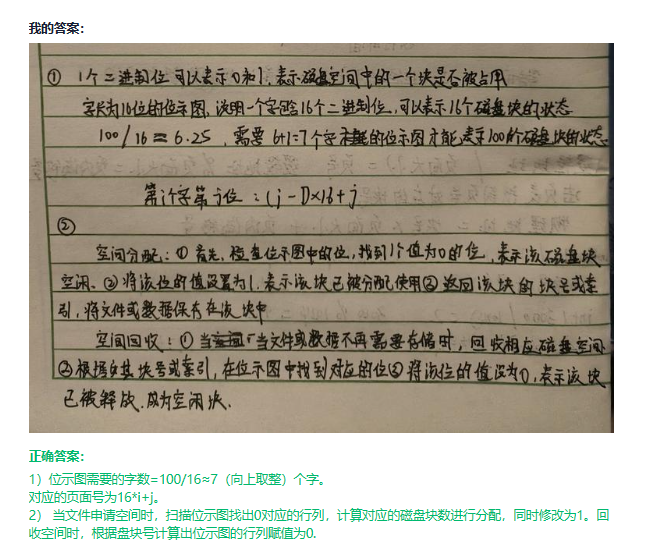 我的答案:
① 1个二进制位可以表示0和1,表示磁盘空间中的一个块是否被占用
字长为16位的位示图,说明一个字包含16个二进制位,可以表示16个磁盘块的状态
100/16≈6.25,需要6+1=7个字的位示图才能表示100个磁盘块的状态.
第i个字第j位:(j-1)×16+j
②
空间分配:①首先,检查位示图中的位,找到1个值为0的位,表示该磁盘块
空闲、②将该位的值设置为1,表示该块已被分配使用③返回该块的块号或索
引,将文件或数据保存在该块中
空间回收:①当文件或数据不再需要存储时,回收相应磁盘空间
②根据其块号或索引,在位示图中找到对应的位③将该位的值设为0,表示该块
已被释放.成为空闲块.
正确答案:
1)位示图需要的字数=100/16≈7(向上取整)个字。
对应的页面号为16*i+j。
2) 当文件申请空间时,扫描位示图找出0对应的行列,计算对应的磁盘块数进行分配,同时修改为1。回
收空间时,根据盘块号计算出位示图的行列赋值为0.